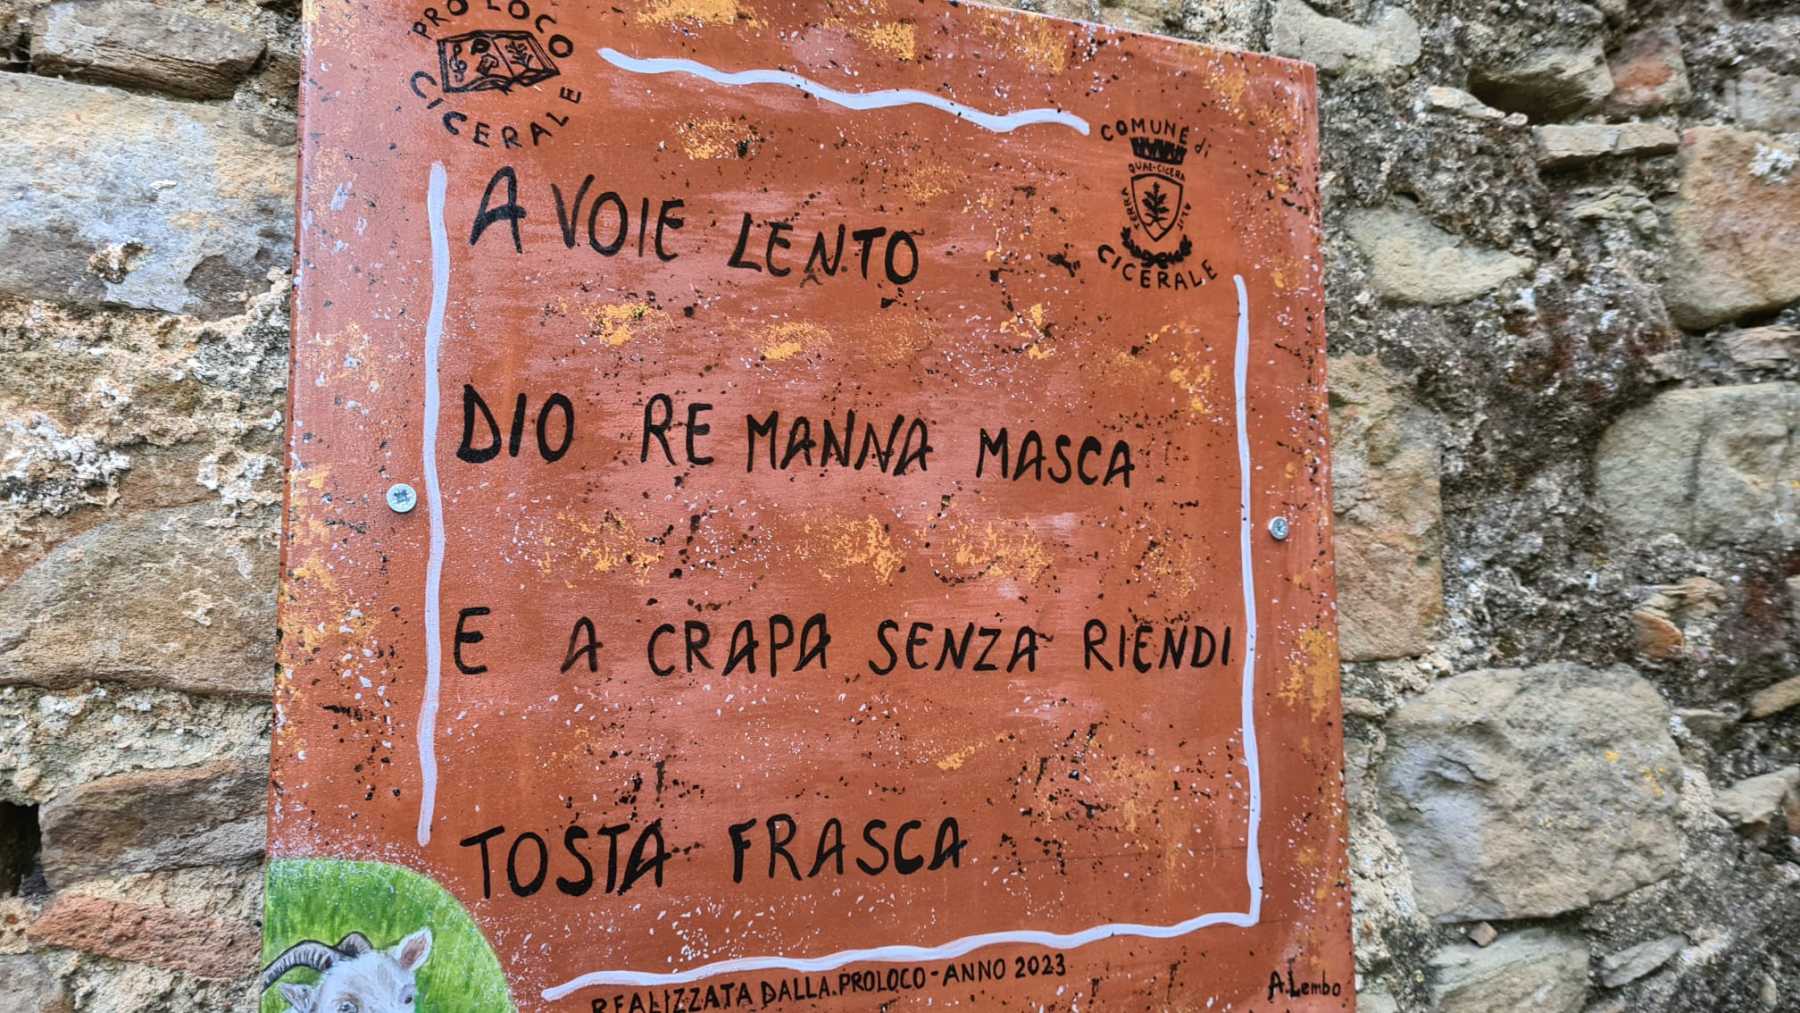 PRO LOCO
CICERALE
COMUNE di
QUAE CICERA
TERRA
ALIT
CICERALE
A VOIE LENTO
DIO RE MANNA MASCA
E A CRAPA SENZA RIENDI
TOSTA FRASCA
REALIZZATA DALLA PROLOCO - ANNO 2023
A. Lembo